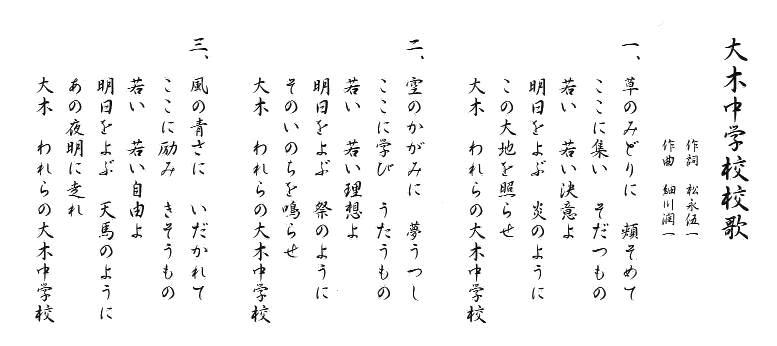 大木中学校校歌
作詞　松永伍一
作曲　細川潤一
一、草のみどりに　頬そめて
ここに集い　そだつもの
若い　若い決意よ
明日をよぶ　炎のように
この大地を照らせ
大木　われらの大木中学校
二、空のかがみに　夢うつし
ここに学び　うたうもの
若い　若い理想よ
明日をよぶ　祭のように
そのいのちを鳴らせ
大木　われらの大木中学校
三、風の青さに　いだかれて
ここに励み　きそうもの
若い　若い自由よ
明日をよぶ　天馬のように
あの夜明に走れ
大木　われらの大木中学校